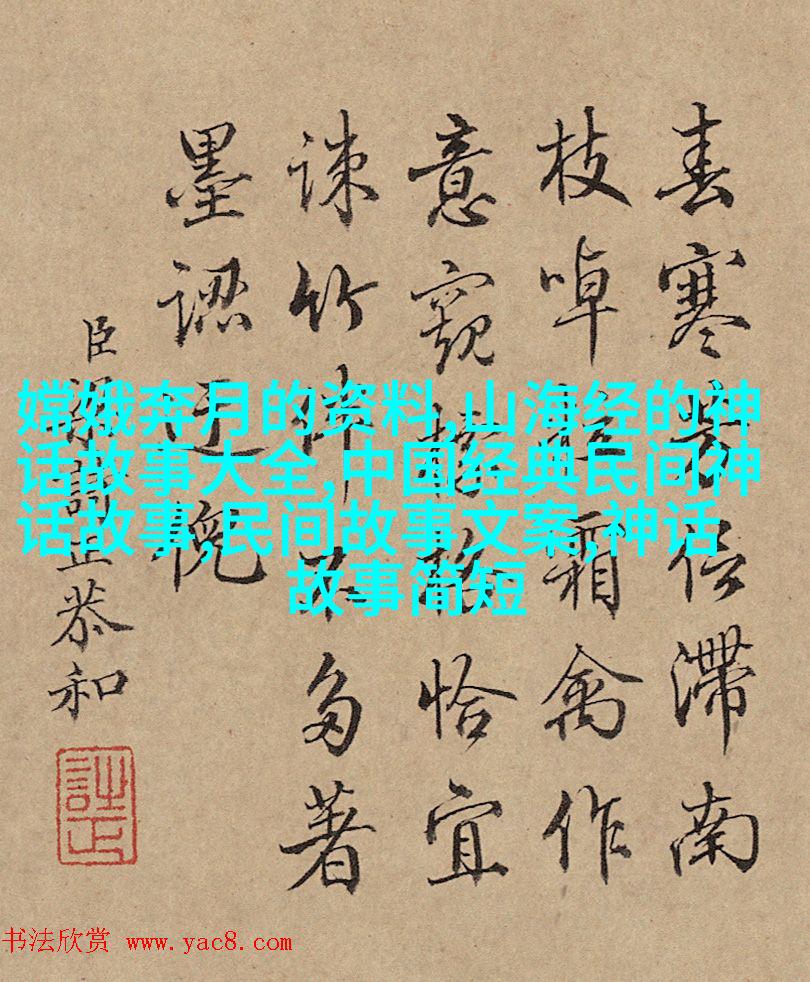 春寒信滞南
枝啅霜禽作
意窺恰宜
竹不多著
墨認
臣梁詩正恭和
詩正
嫦娥奔月的资料,山海经的神
话故事大全,中国经典民间神
话故事,民间故事文案,神话
故事简短
书法欣赏 www.yac8.com